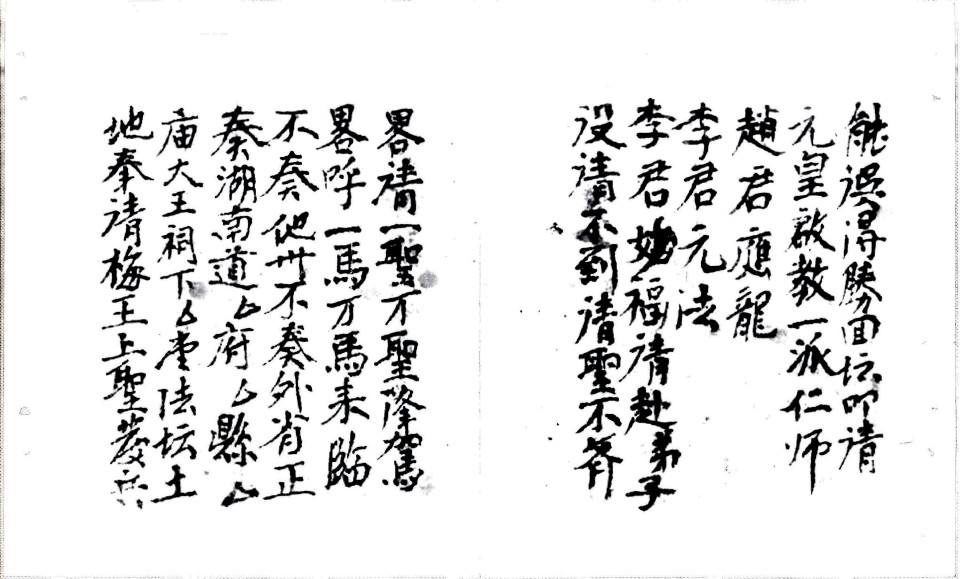 能误浔勝回坛叩请
元皇啟教一派仁师
趙君應龍
李君元法
李君妙福请赴弟子
没請不到請聖不齊
畧請一聖万聖降駕
畧呼一馬万馬来臨
不奏他卅不奏外省正
奏湖南道厶府厶縣厶
庙大王祠下厶堂法坛土
地奉请梅王上聖發兵